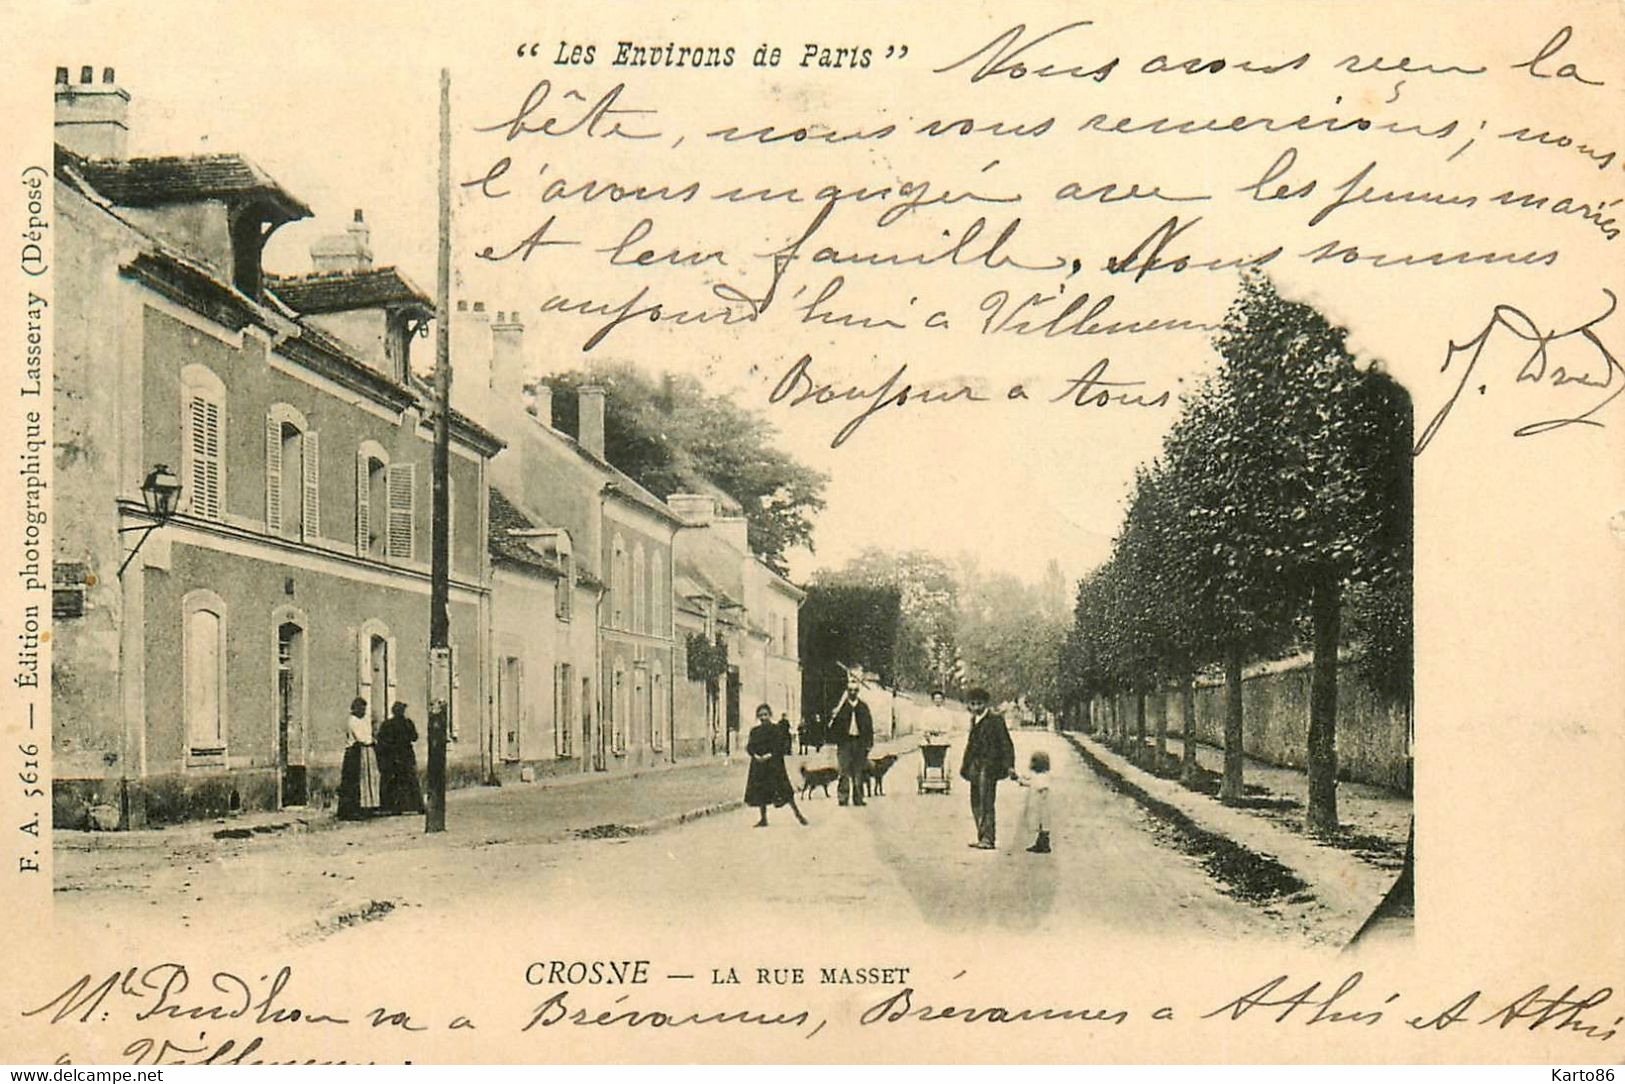 “ Les Environs de Paris ”
Nous avons reçu la
bête, nous vous remercions; nous
l'avons mangée avec les jeunes mariés
et leur famille. Nous sommes
aujourd'hui à Villeneuve
Bonjour a tous
F. A. 5616 — Édition photographique Lasseray (Déposé)
CROSNE — LA RUE MASSET
Prudhon va a Brévannes, Brévannes a Athis et Athis
a Villeneuve.
www.delcampe.net
Karto86